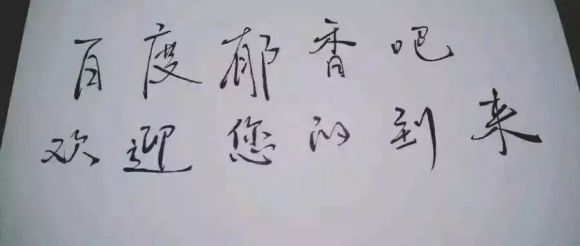 百度郁香吧
欢迎您的到来